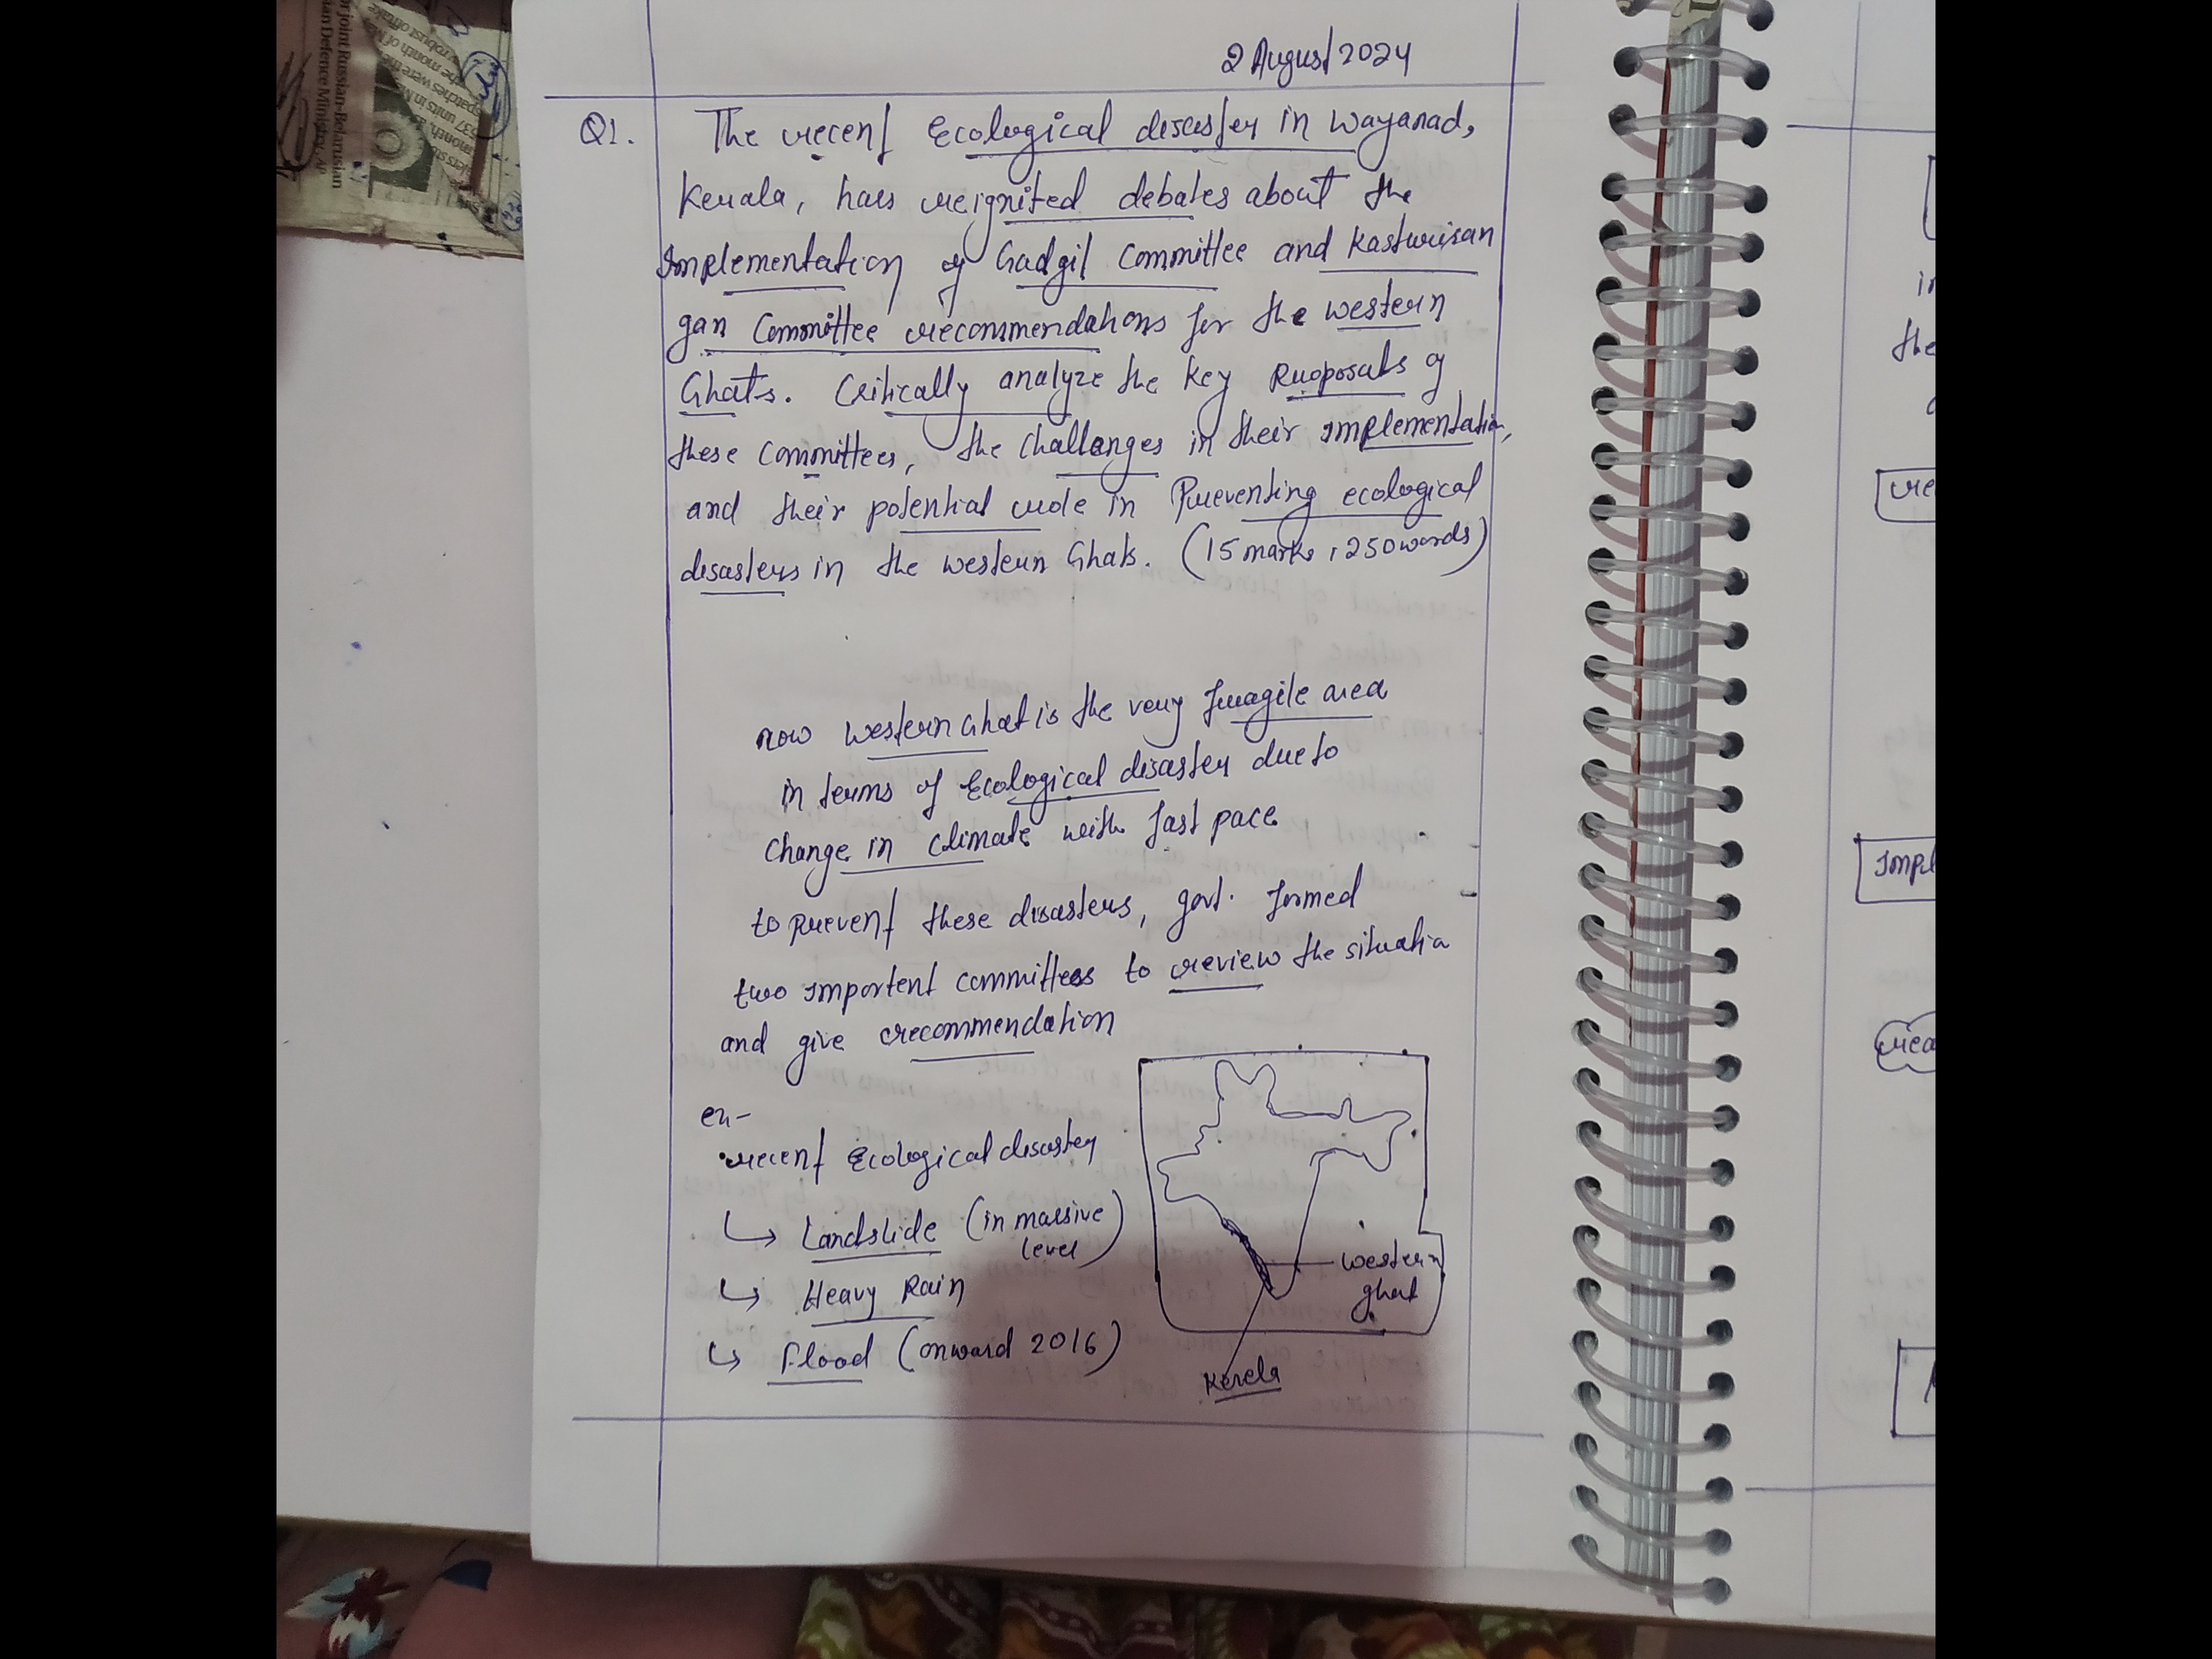 2 August 2024
Q1. The recent Ecological disaster in Wayanad,
Kerala, has reignited debates about the
Implementation of Gadgil Committee and Kasturiran
gan Committee recommendations for the western
Ghats. Critically analyze the key Proposals of
these committees, the challenges in their implementation,
and their potential role in Preventing ecological
disasters in the western Ghats. (15 marks, 250 words)
now western Ghat is the very fragile area
in terms of Ecological disaster due to
change in climate with fast pace
to prevent these disasters, govt. formed
two importent committees to review the situation
and give recommendation
ex-
recent Ecological disaster
↳ Landslide (in massive
level)
↳ Heavy Rain
↳ Flood (onward 2016)
western
ghat
Kerela
or joint Russian-Belarusian
ian Defence Ministry. AP
637 units in M
the month of M
robust offtake
in
the